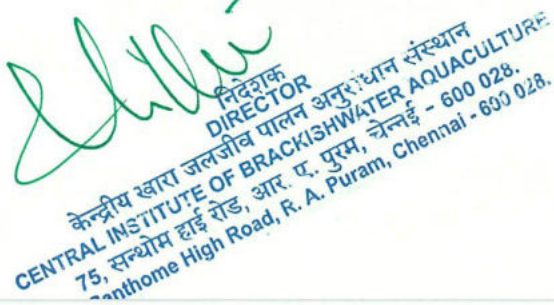 निदेशक
DIRECTOR
केन्द्रीय खारा जलजीव पालन अनुसंधान संस्थान
CENTRAL INSTITUTE OF BRACKISHWATER AQUACULTURE
75, सन्थोम हाई रोड, आर. ए. पुरम, चेन्नई - 600 028.
Santhome High Road, R. A. Puram, Chennai - 600 028.